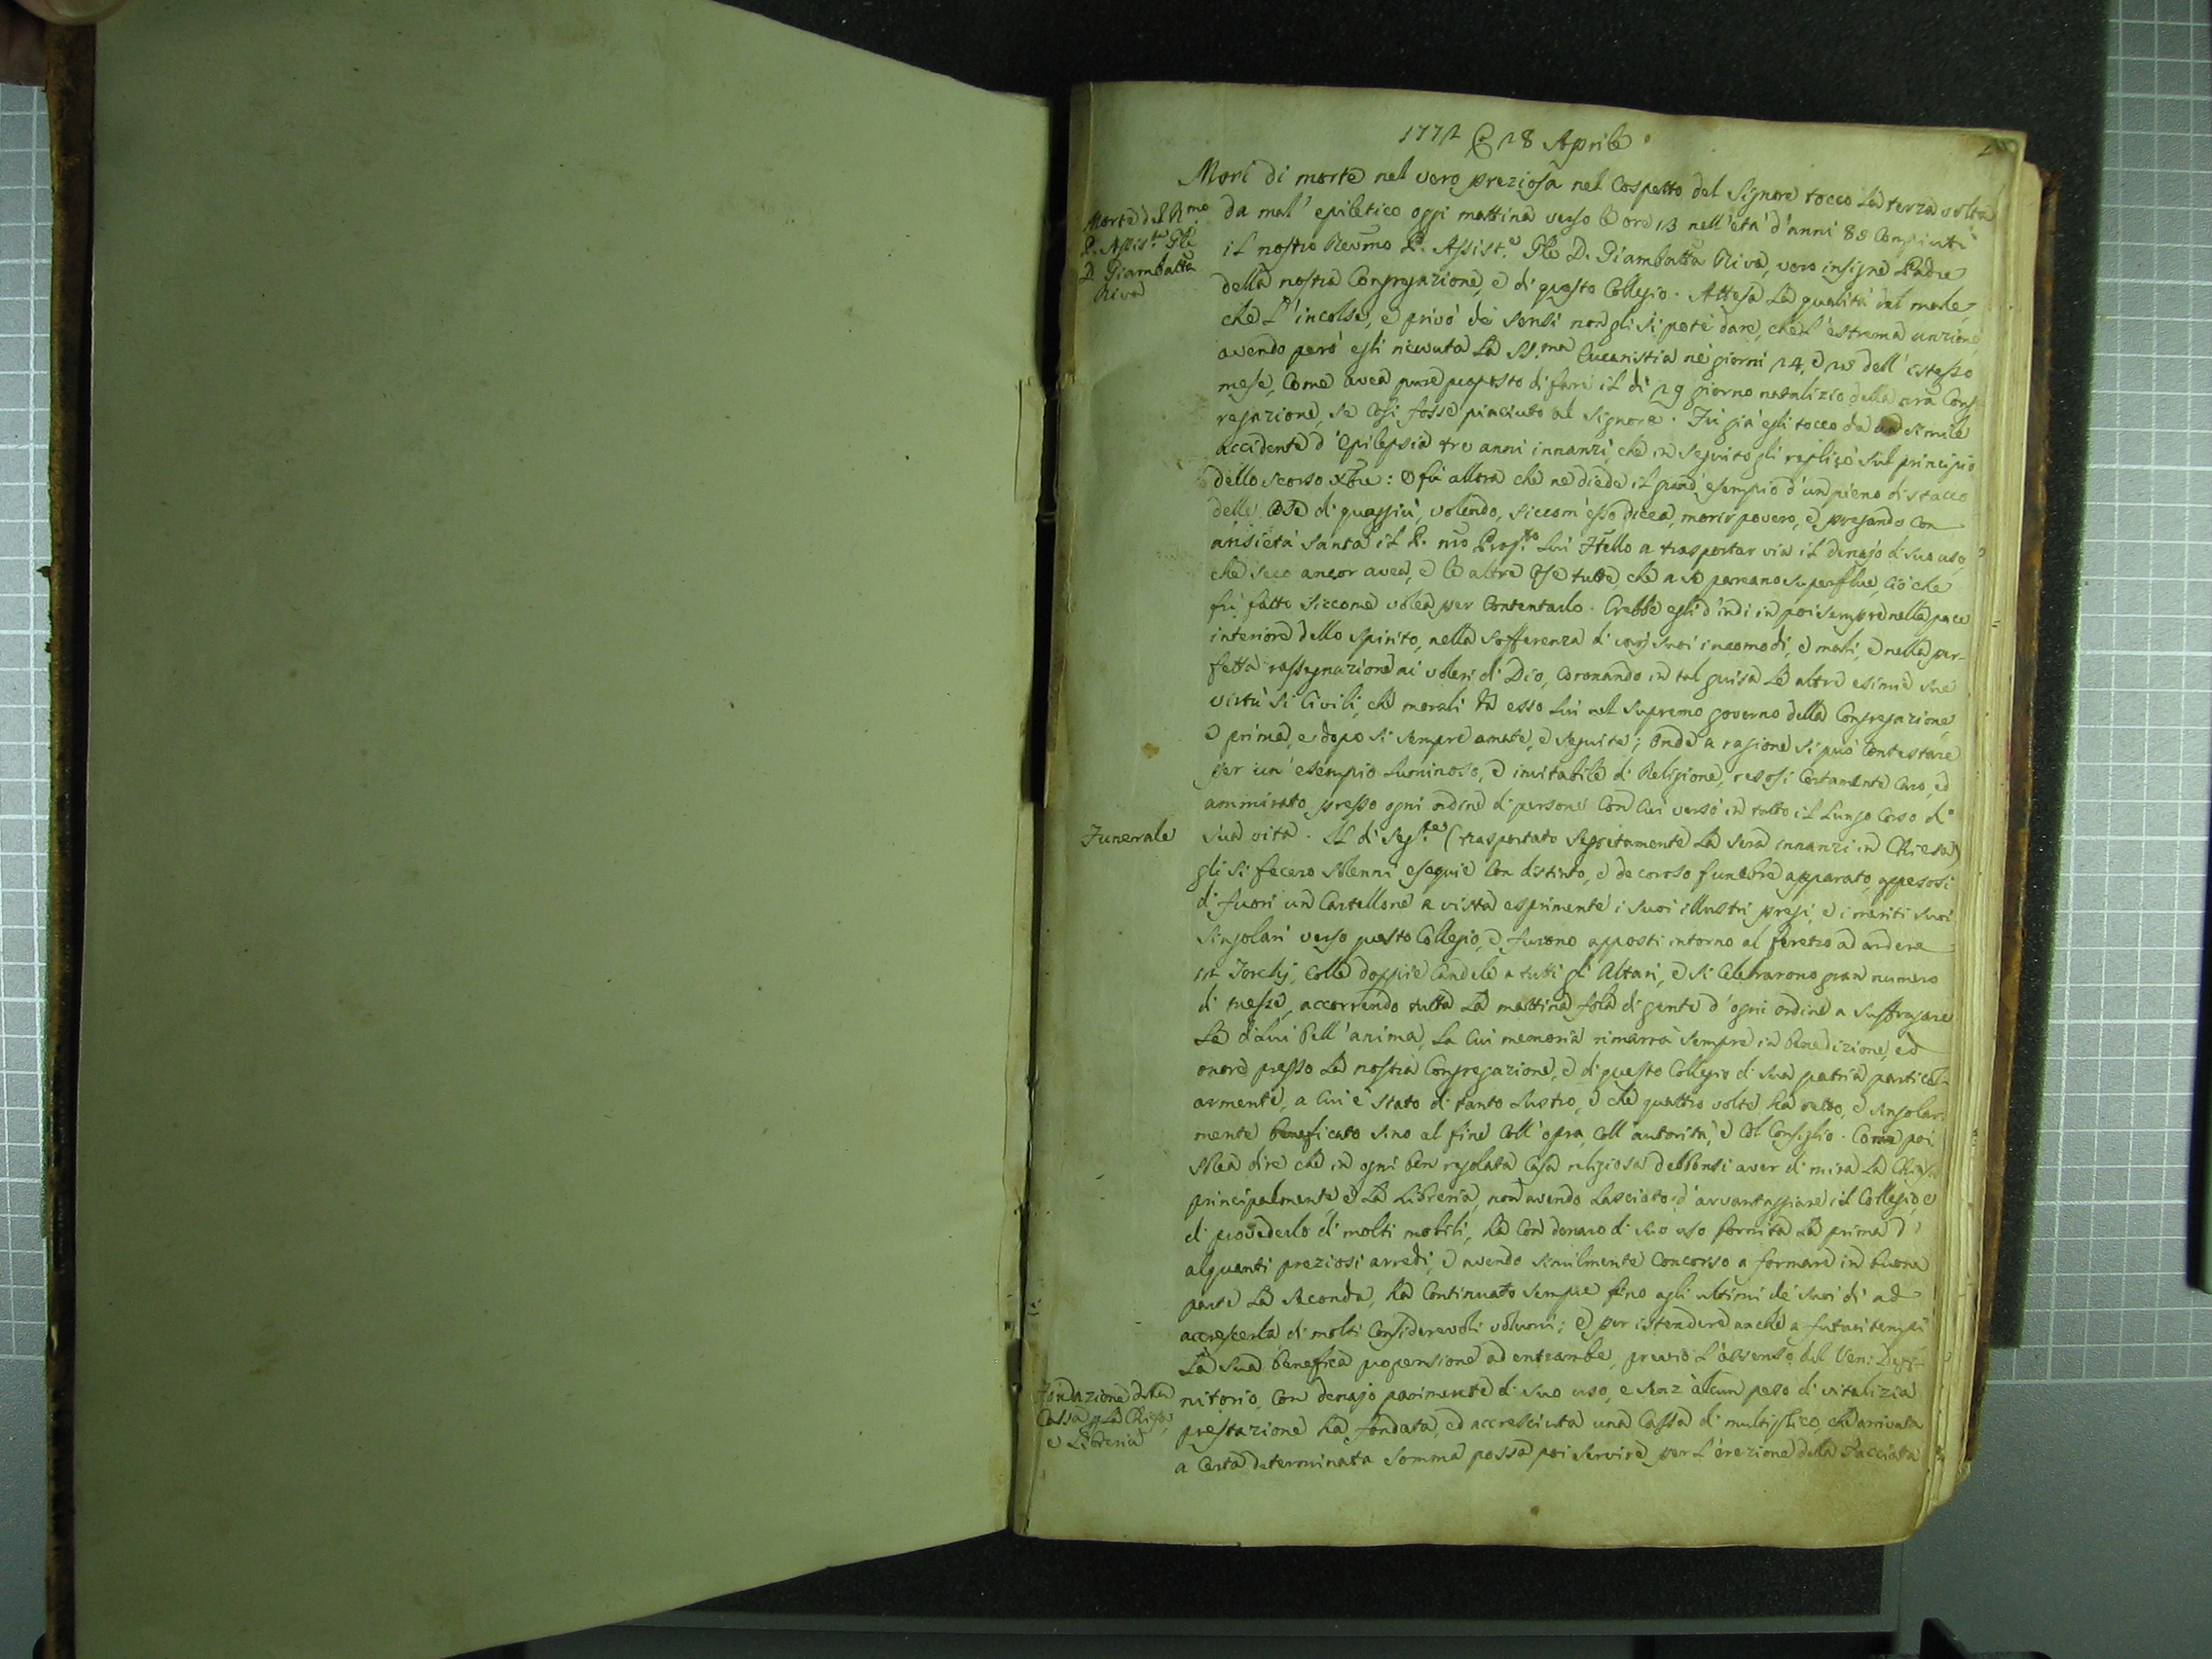 1772 28 Aprile
Morì di morte nel vero preziosa nel Cospetto del Signore tocco la terza volta
Morte del Rmo
P. Assist.te Gle
D. Giambatta
Riva
da mal' epiletico oggi mattina verso le ore 13 nell'età d'anni 85 Compiuti
il nostro Revmo P. Assist.e Gle D. Giambatta Riva, vero insigne Padre
della nostra Congregazione, e di questo Collegio. Attesa la qualità del male,
che l'incolse, e privò dei sensi non gli si potè dare, che l'estrema unzione,
avendo però egli ricevuta la SS.ma Eucaristia nè giorni 24, e 25 dell' istesso
mese, Come avea pure proposto di fare il dì 29 giorno natalizio della nra Cong-
regazione, se Così fosse piaciuto al Signore. Fù già egli tocco da un simile
accidente d'Epilepsia tre anni innanzi, che in seguito gli replicò sul principio
dello scorso Xbre: e fù allora che ne diede il grand' esempio d'un pieno distacco
delle Cose di quaggiù, volendo, siccom' esso dicea, morir povero, e pregando Con
ansietà santa il P. nro Prep.to Lui Ftello a trasportar via il denajo di suo uso,
che seco ancor avea, e le altre Cose tutte, che a se pareano superflue, Ciò che
fù fatto siccome volea per Contentarlo. Crebbe egli d'indi in poi sempre nella pace
interiore dello Spirito, nella sofferenza di varj suoi incomodi, e mali, e nella per-
fetta rassegnazione ai voleri di Dio, Coronando in tal guisa le altre esimie sue
virtù sì Civili, che morali da esso lui nel Supremo governo della Congregazione,
e prima, e dopo sì sempre amate, e seguite; onde a ragione si può Contestare
per un' esempio luminoso, e imitabile di Religione, resosi Certamente Caro, ed
ammirato presso ogni ordine di persone Con Cui versò in tutto il lungo Corso di
Funerale
sua vita. Il dì Seg.te (trasportato Segretamente la sera innanzi in Chiesa)
gli si fecero solenni esequie Con distinto, e decoroso funebre apparato, appesosi
di fuori un Cartellone a vista esprimente i suoi illustri pregi, e i meriti suoi
Singolari verso questo Collegio, e furono apposti intorno al feretro ad ardere
12 Torchj, Colle doppie Candele a tutti gli Altari, e si Celebrarono gran numero
di messe, accorrendo tutta la mattina fola di gente d'ogni ordine a suffragare
la di lui bell'anima, la Cui memoria rimarrà sempre in benedizione, ed
onore presso la nostra Congregazione, e di questo Collegio di sua patria particol-
armente, a Cui è stato di tanto lustro, e che quattro volte ha retto, e singolar-
mente beneficato sino al fine Coll'opra, Coll'autorità, e Col Consiglio. Come poi
solea dire che in ogni ben regolata Casa religiosa debbonsi aver di mira la Chiesa
principalmente e la Libreria, non avendo lasciato d'avvantaggiare il Collegio, e
di provederlo di molti mobili, ha Con denaro di suo uso fornita la prima d'
alquanti preziosi arredi, e avendo similmente Concorso a formare in buona
parte la Seconda, ha Continuato sempre fino agli ultimi de' suoi dì ad
accrescerla di molti Considerevoli volumi; e per istendere anche a futuri tempi
la sua benefica propensione ad entrambe, previo l'assenso del Ven: Defi-
Fondazione della
Cassa p la Chiesa,
e Libreria
nitorio, Con denajo parimente di suo uso, e senz'alcun peso di vitalizia
prestazione ha fondata, ed accresciuta una Cassa di multiplico, che arrivata
a Certa determinata Somma possa poi servire per l'erezione della Facciata